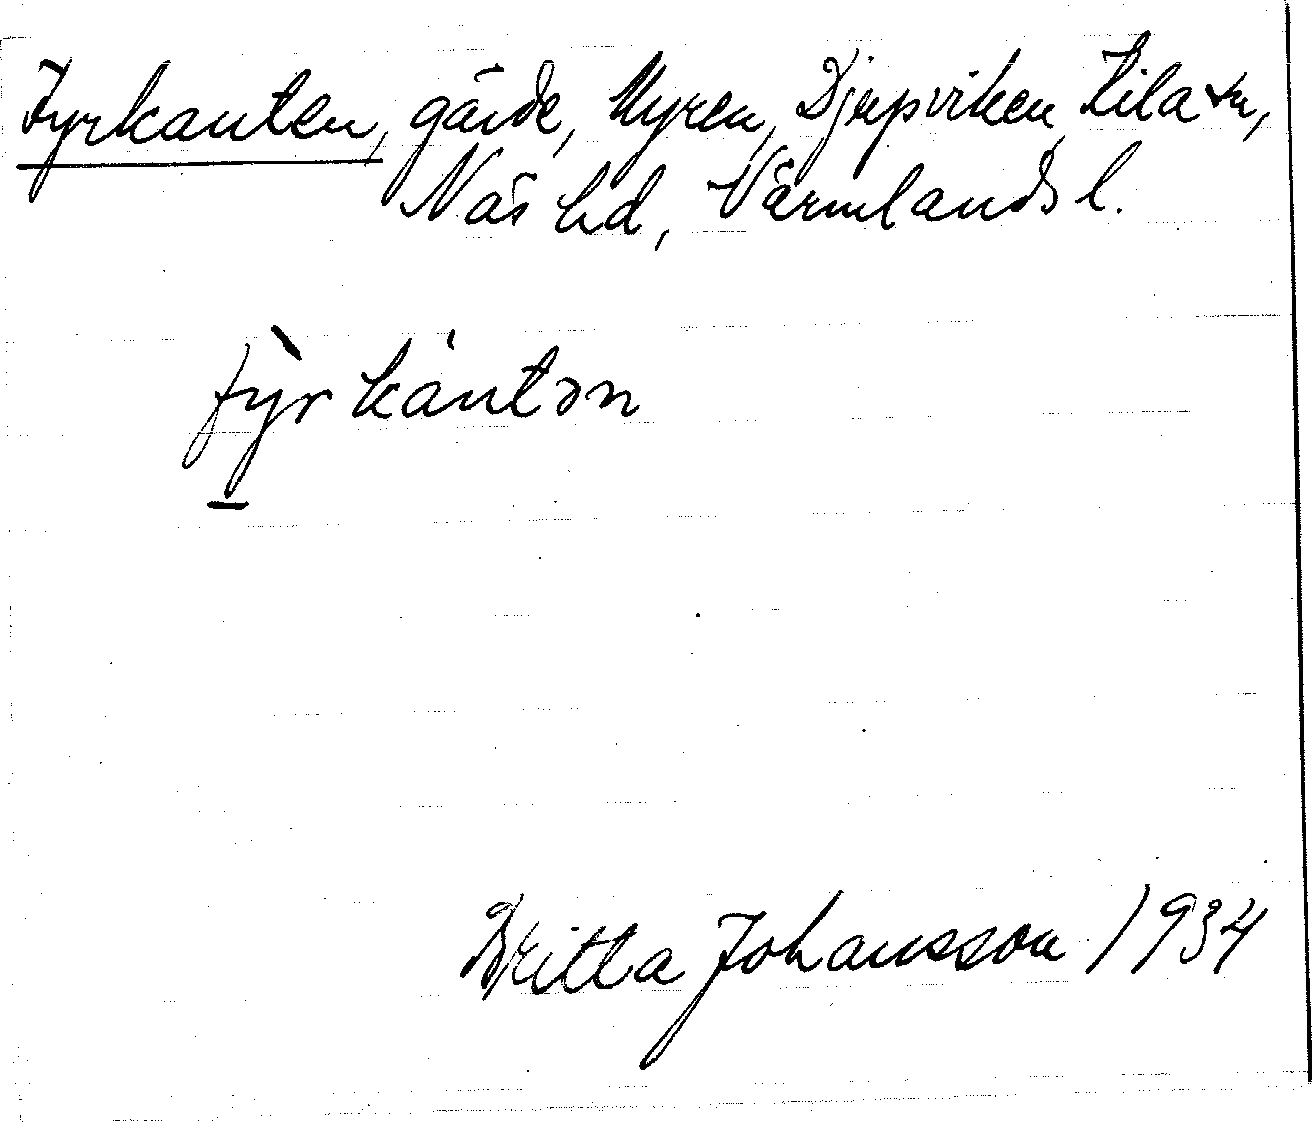 Fyrkanten, gärde, Myren, Djupviken, Kila sn,
Näs hd, Värmlands l.
fỳrkántən
Britta Johansson 1934